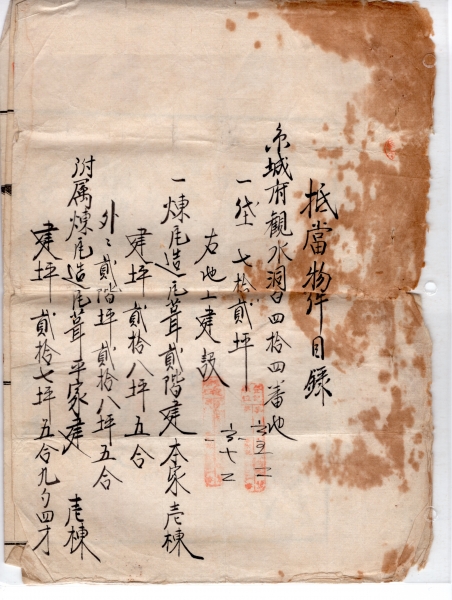 抵當物件目錄
京城府觀水洞百四拾四番地
一垈 七拾貳坪
右地上建設
一煉瓦造瓦葺貳階建本家壱棟
建坪 貳拾八坪五合
外ニ貳階坪貳拾八坪五合
附属煉瓦造瓦葺平家建 壱棟
建坪 貳拾七坪五合九夕四才